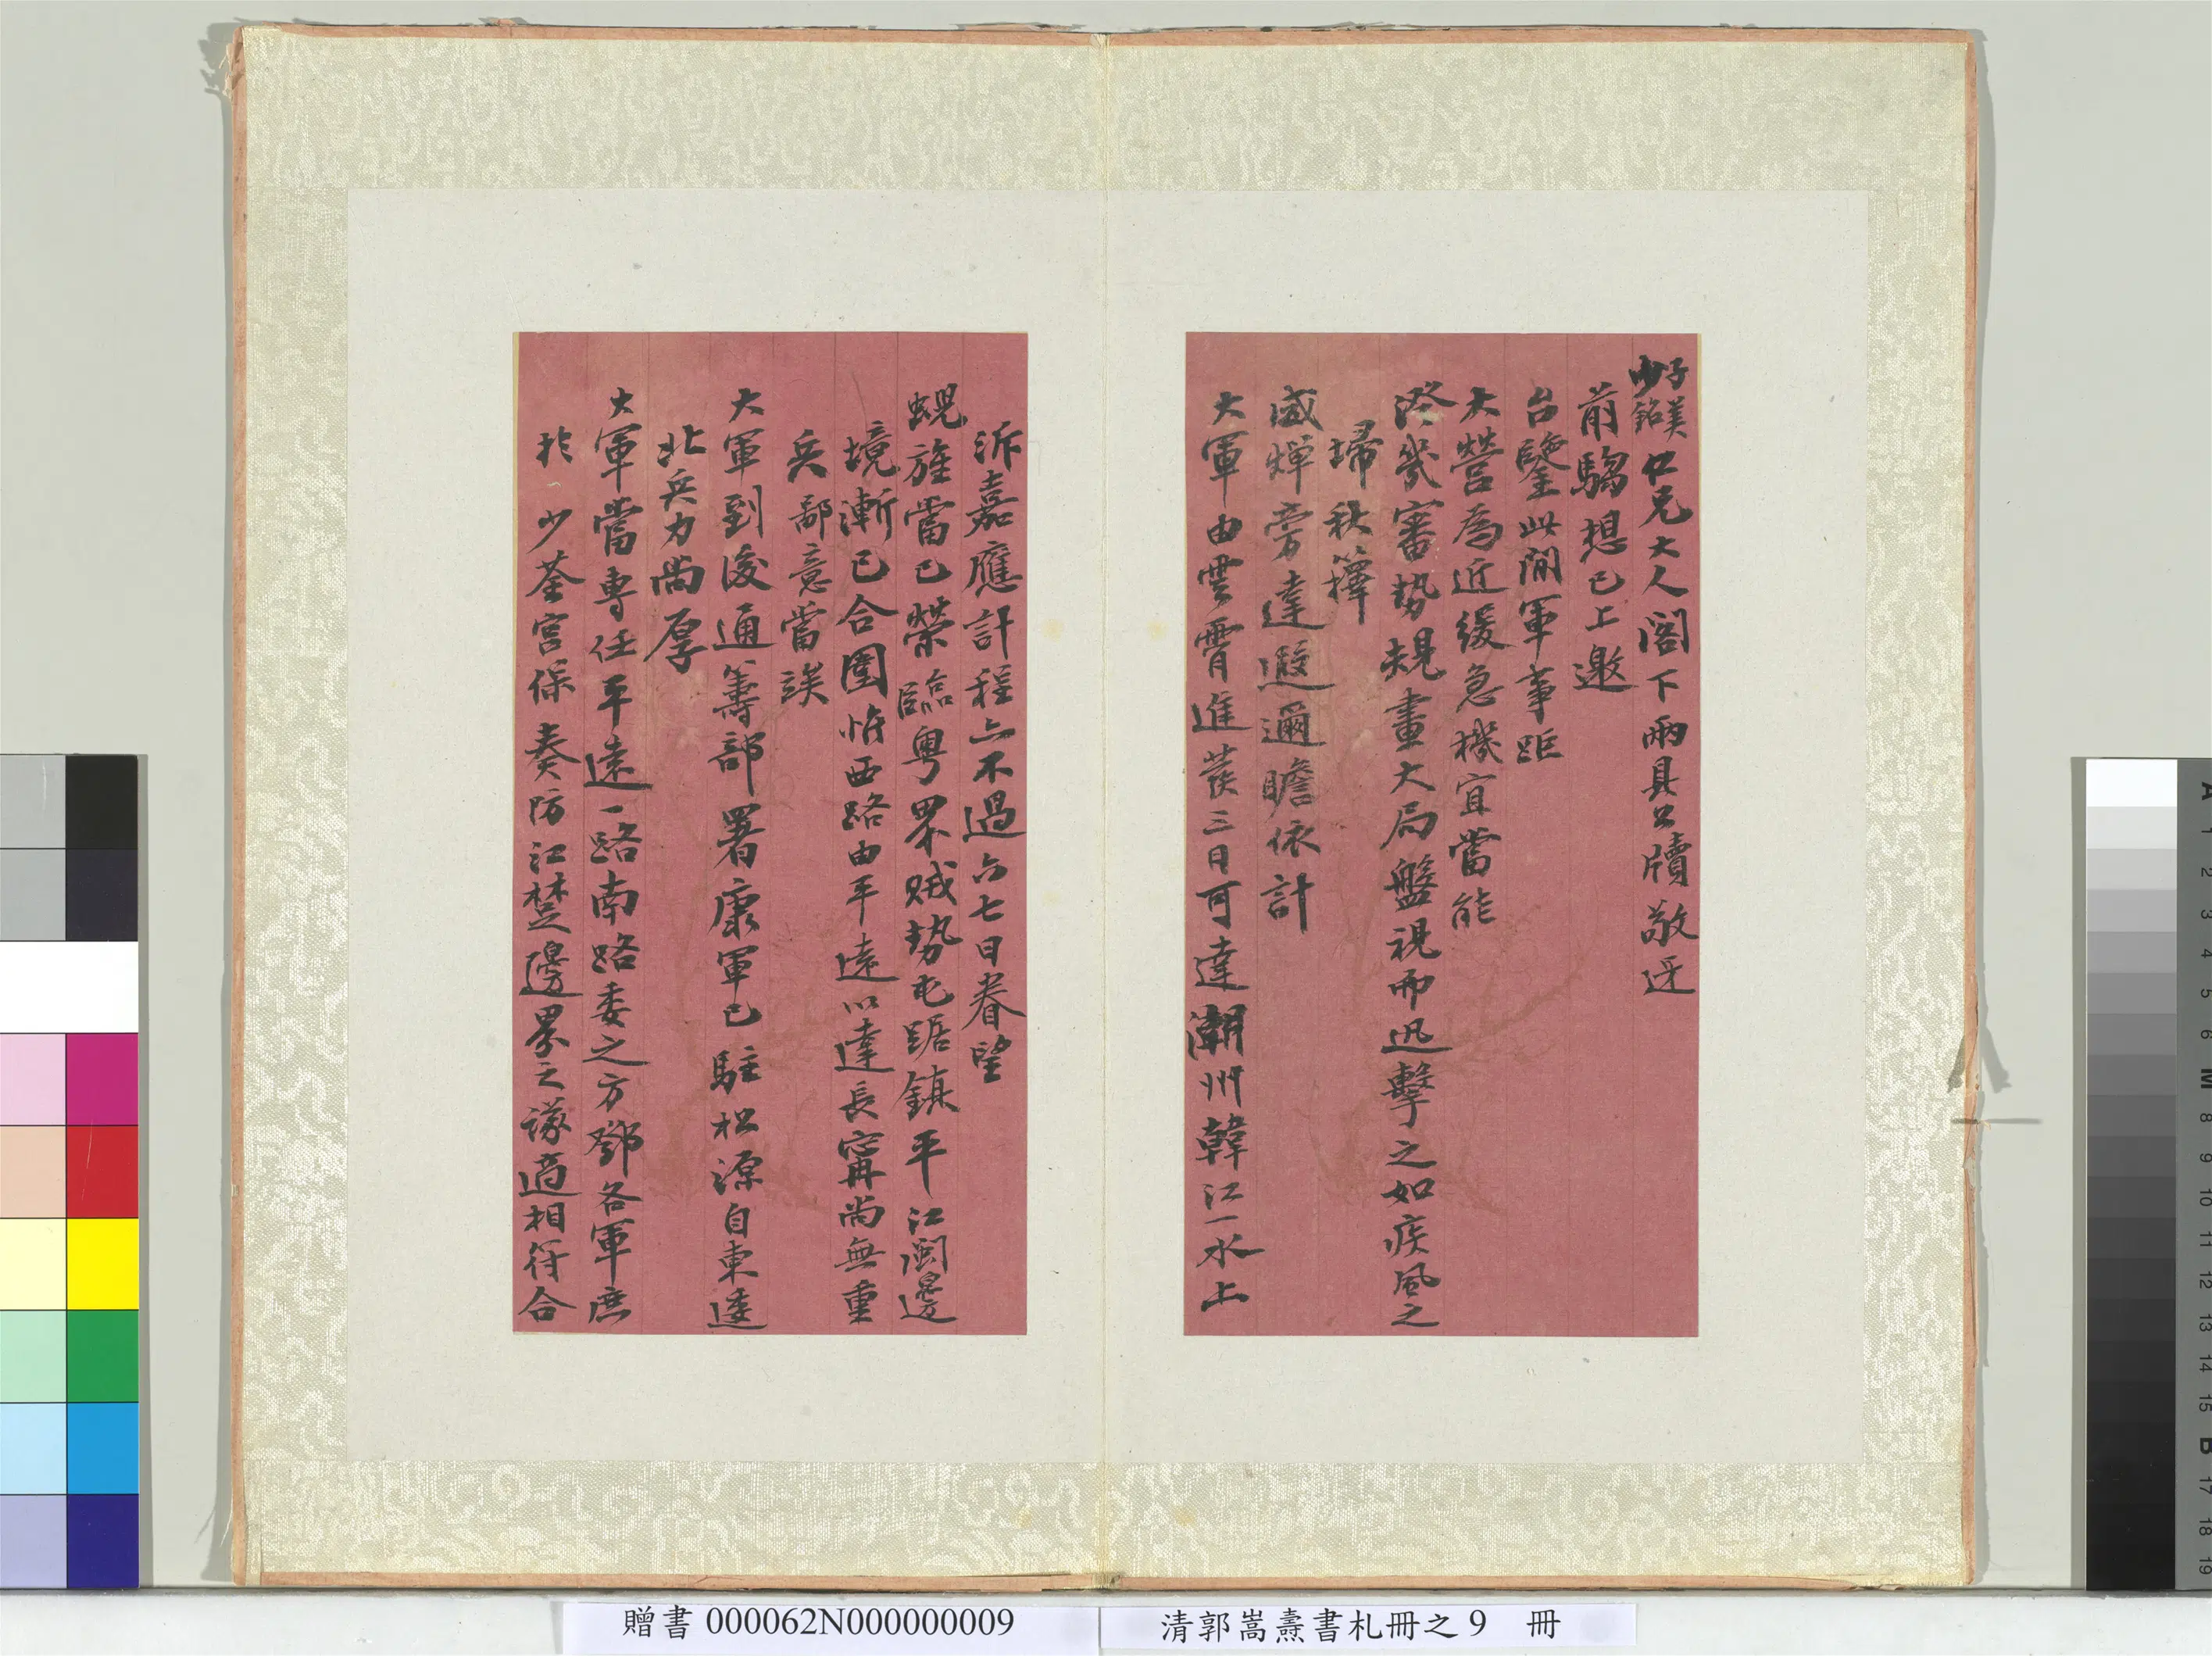 子美
少銘
仁兄大人閣下兩具公牘敬迓
前騶想已上邀
台鑒此間軍事距
大營為近緩急機宜當能
泠幾審勢規畫大局盤視而迅擊之如疾風之
掃秋籜
威燀旁達遐邇瞻依計
大軍由雲霄進發三日可達潮州韓江一水上
泝嘉應計程亦不過六七日眷望
蜺旌當已榮臨粵界賊勢屯踞鎮平江閩邊
境漸已合圍惟西路由平遠以達長甯尚無重
兵鄙意當俟
大軍到後通籌部署康軍已駐松源自東逵
北兵力尚厚
大軍當專任平遠一路南路委之方鄧各軍庶
於少荃宮保奏防江楚邊界之議適相符合
贈書 000062N000000009
清郭嵩燾書札冊之 9 冊
A 1 2 3 4 5 6 M 8 9 10 11 12 13 14 15 B 17 18 19